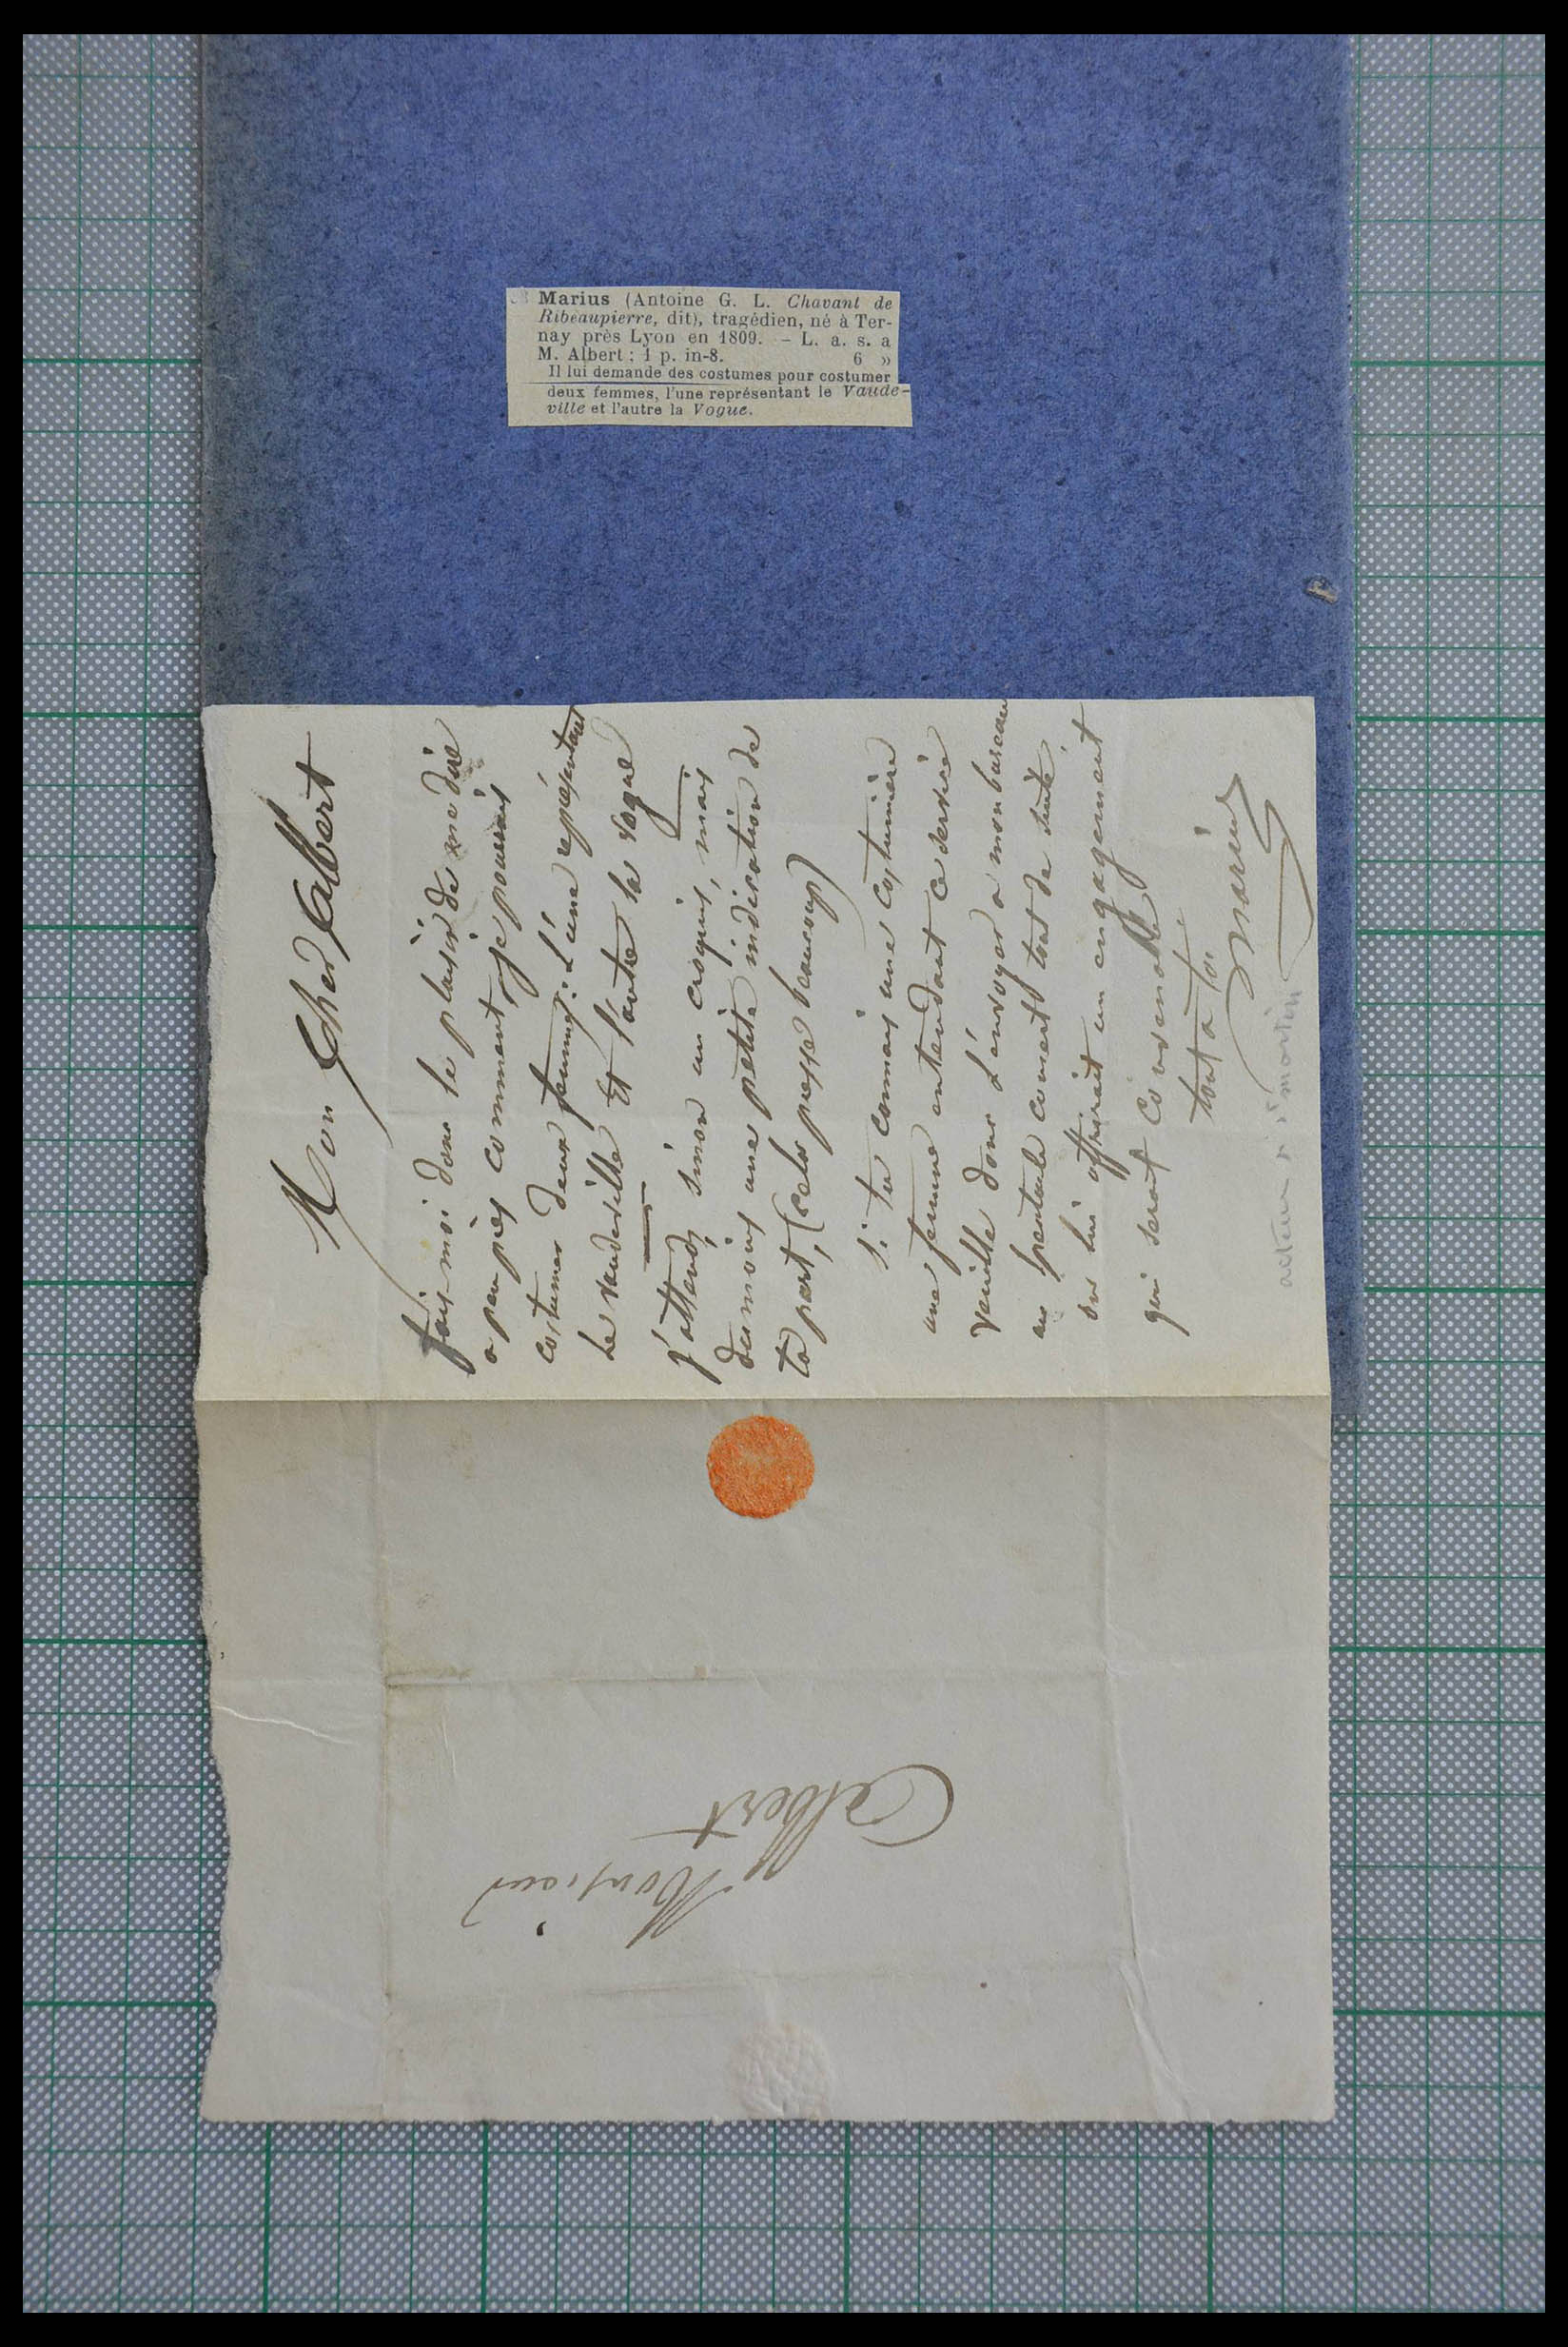 Marius (Antoine G. L. Chavant de
Ribeaupierre, dit), tragédien, né à Ter-
nay près Lyon en 1809. – L. a. s. a
M. Albert ; 1 p. in-8. 6 »
Il lui demande des costumes pour costumer
deux femmes, l'une représentant le Vaude-
ville et l'autre la Vogue.
Mon Cher Albert
fais-moi donc le plaisir de me dire
a peu près comment je pourrais
costumer deux femmes: L'une représentant
Le Vaudeville Et l'autre la Vogue
J'attends, sinon un croquis, mais
dumoins une petite indication de
ta part, (cela presse beaucoup)
si tu connais une costumière
une femme entendant ce service
veuille donc L'envoyer a mon bureau
au spectacle couvert tout de suite,
on lui offrirait un engagement
qui serait Convenable
tout a toi
Marius
acteur St martin
Monsieur
Albert